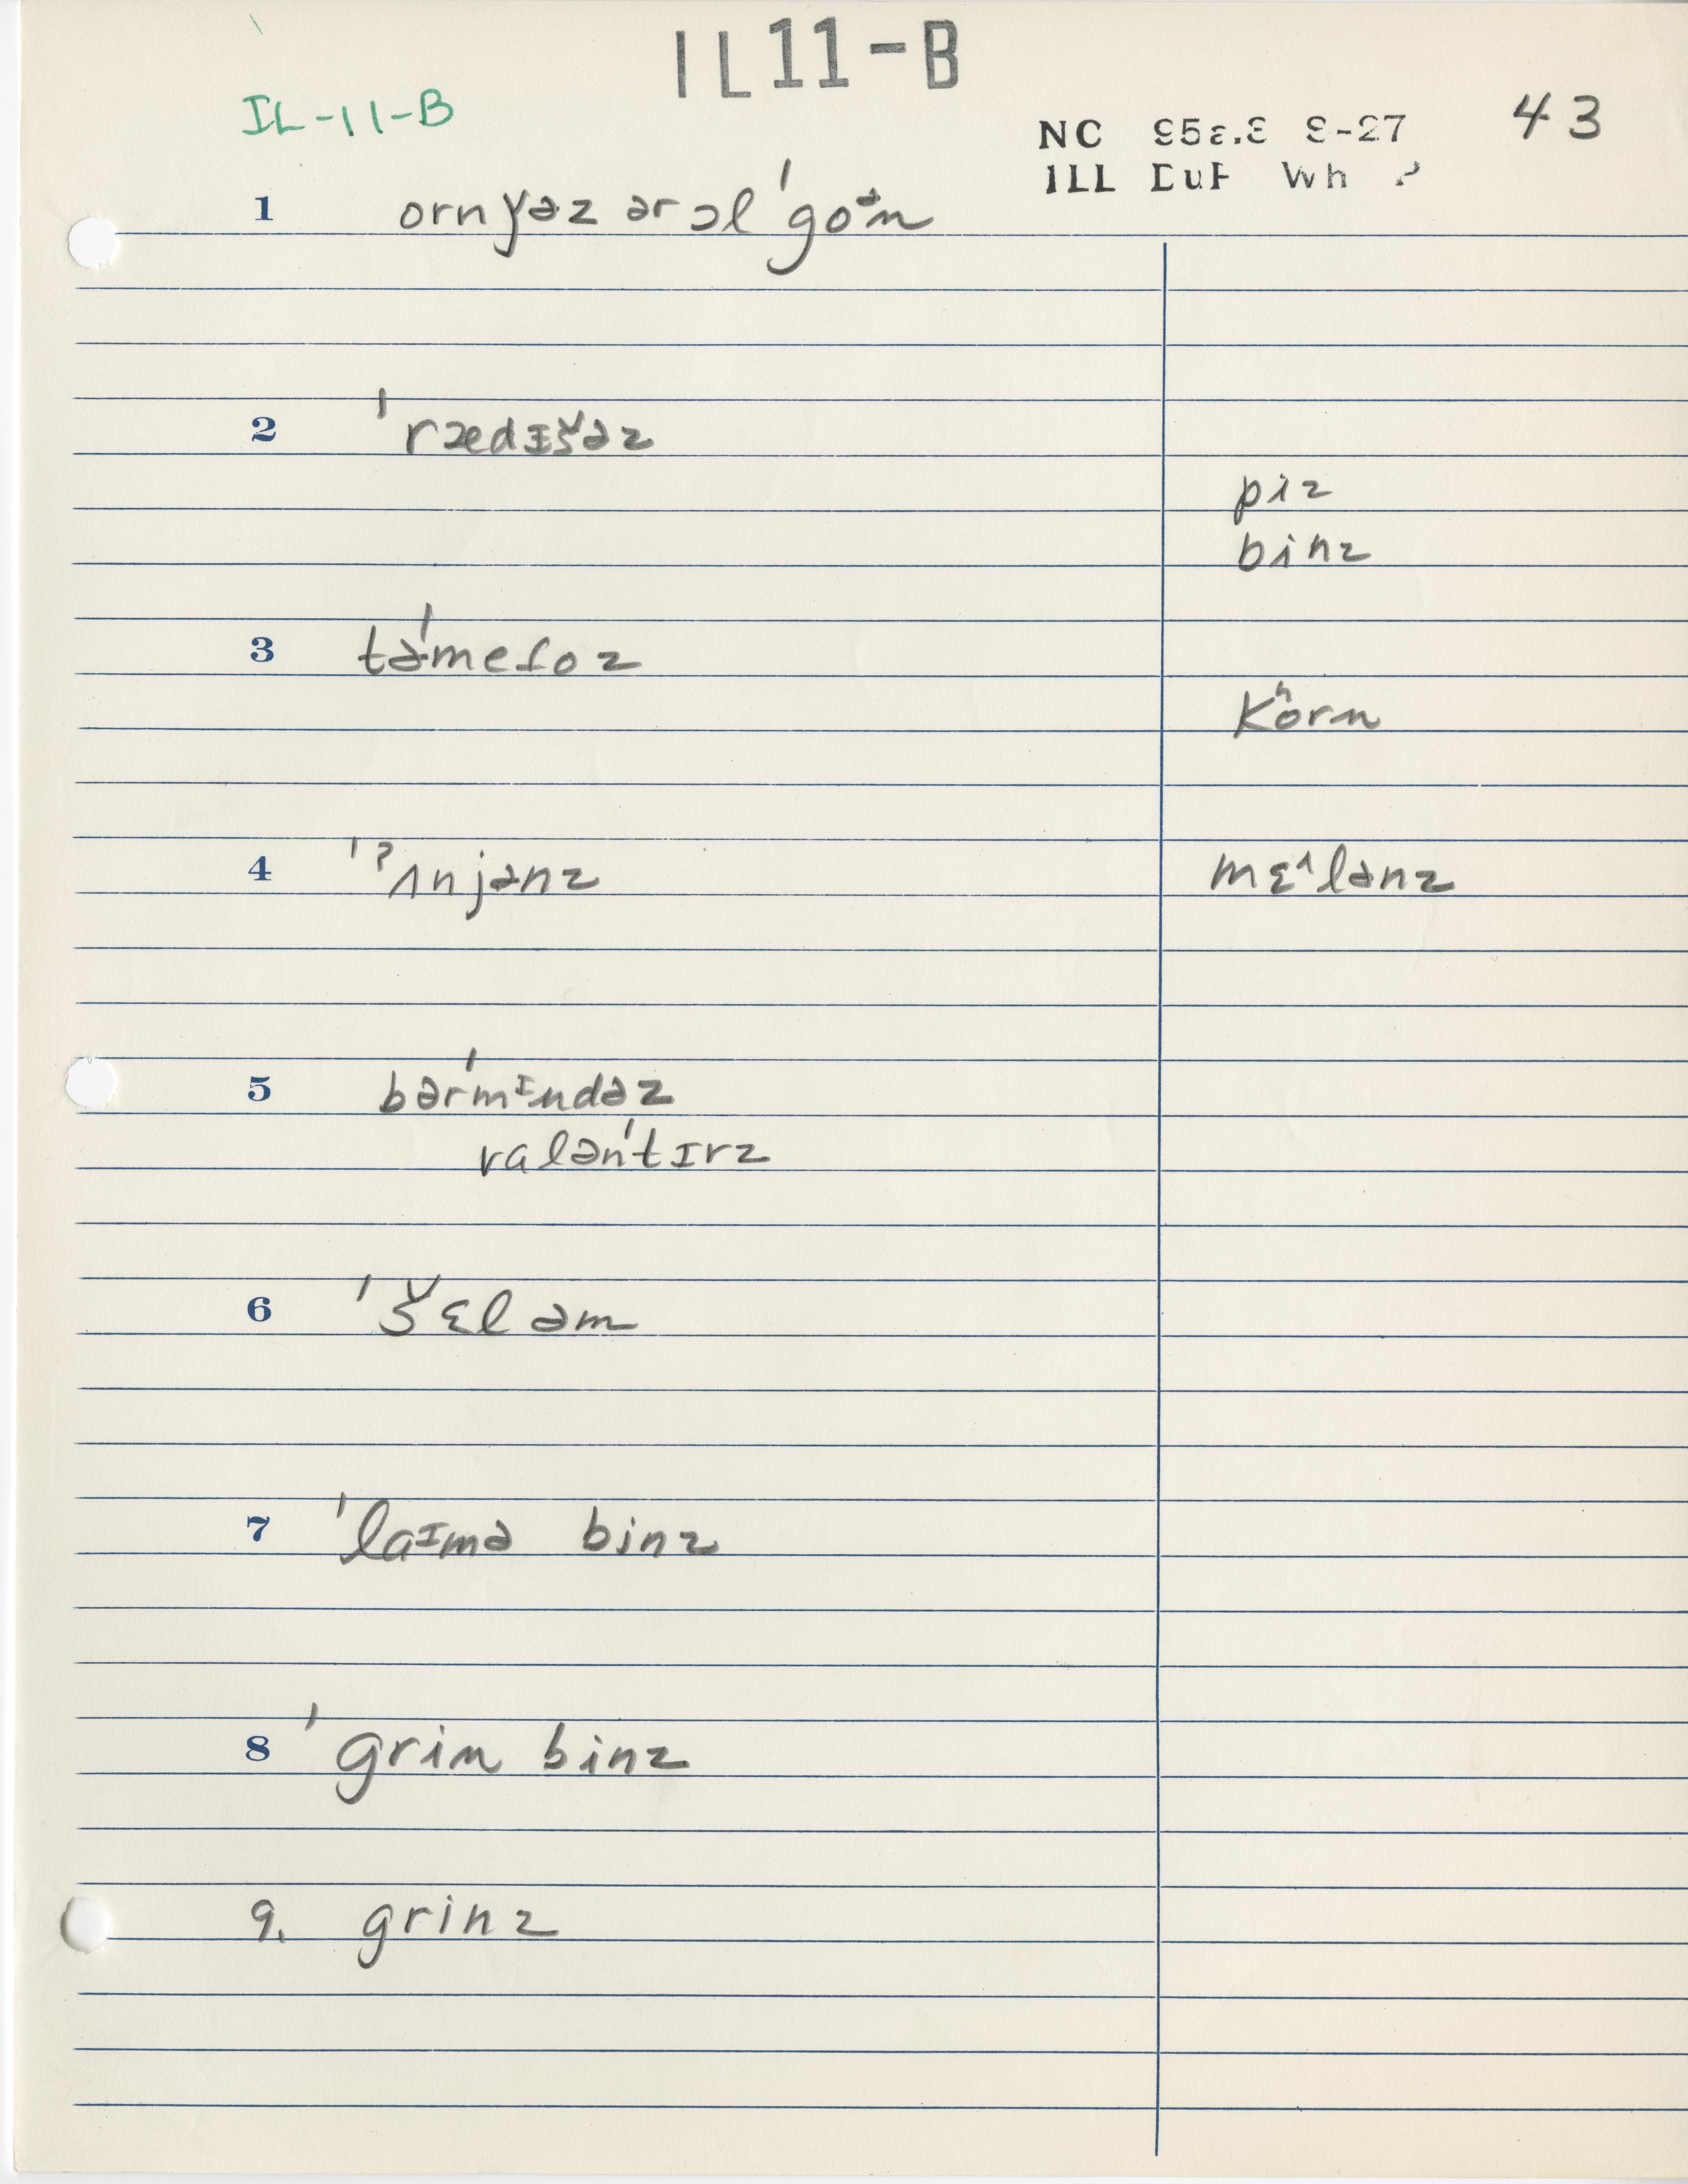 IL11-B
IL-11-B
43
NC 95
ILL DuP Wh
1 ornǰəz ər ɔl ˈgoᵊn
2 ˈrædɪšəz
piz
binz
3 təˈmetoz
kʰorn
4 ˈˀʌnjənz
mɛ^lənz
5 bərˈmᶦndəz
valənˈtɪrz
6 ˈšɛləm
7 ˈlaᶦmə binz
8 ˈgrin binz
9. grinz